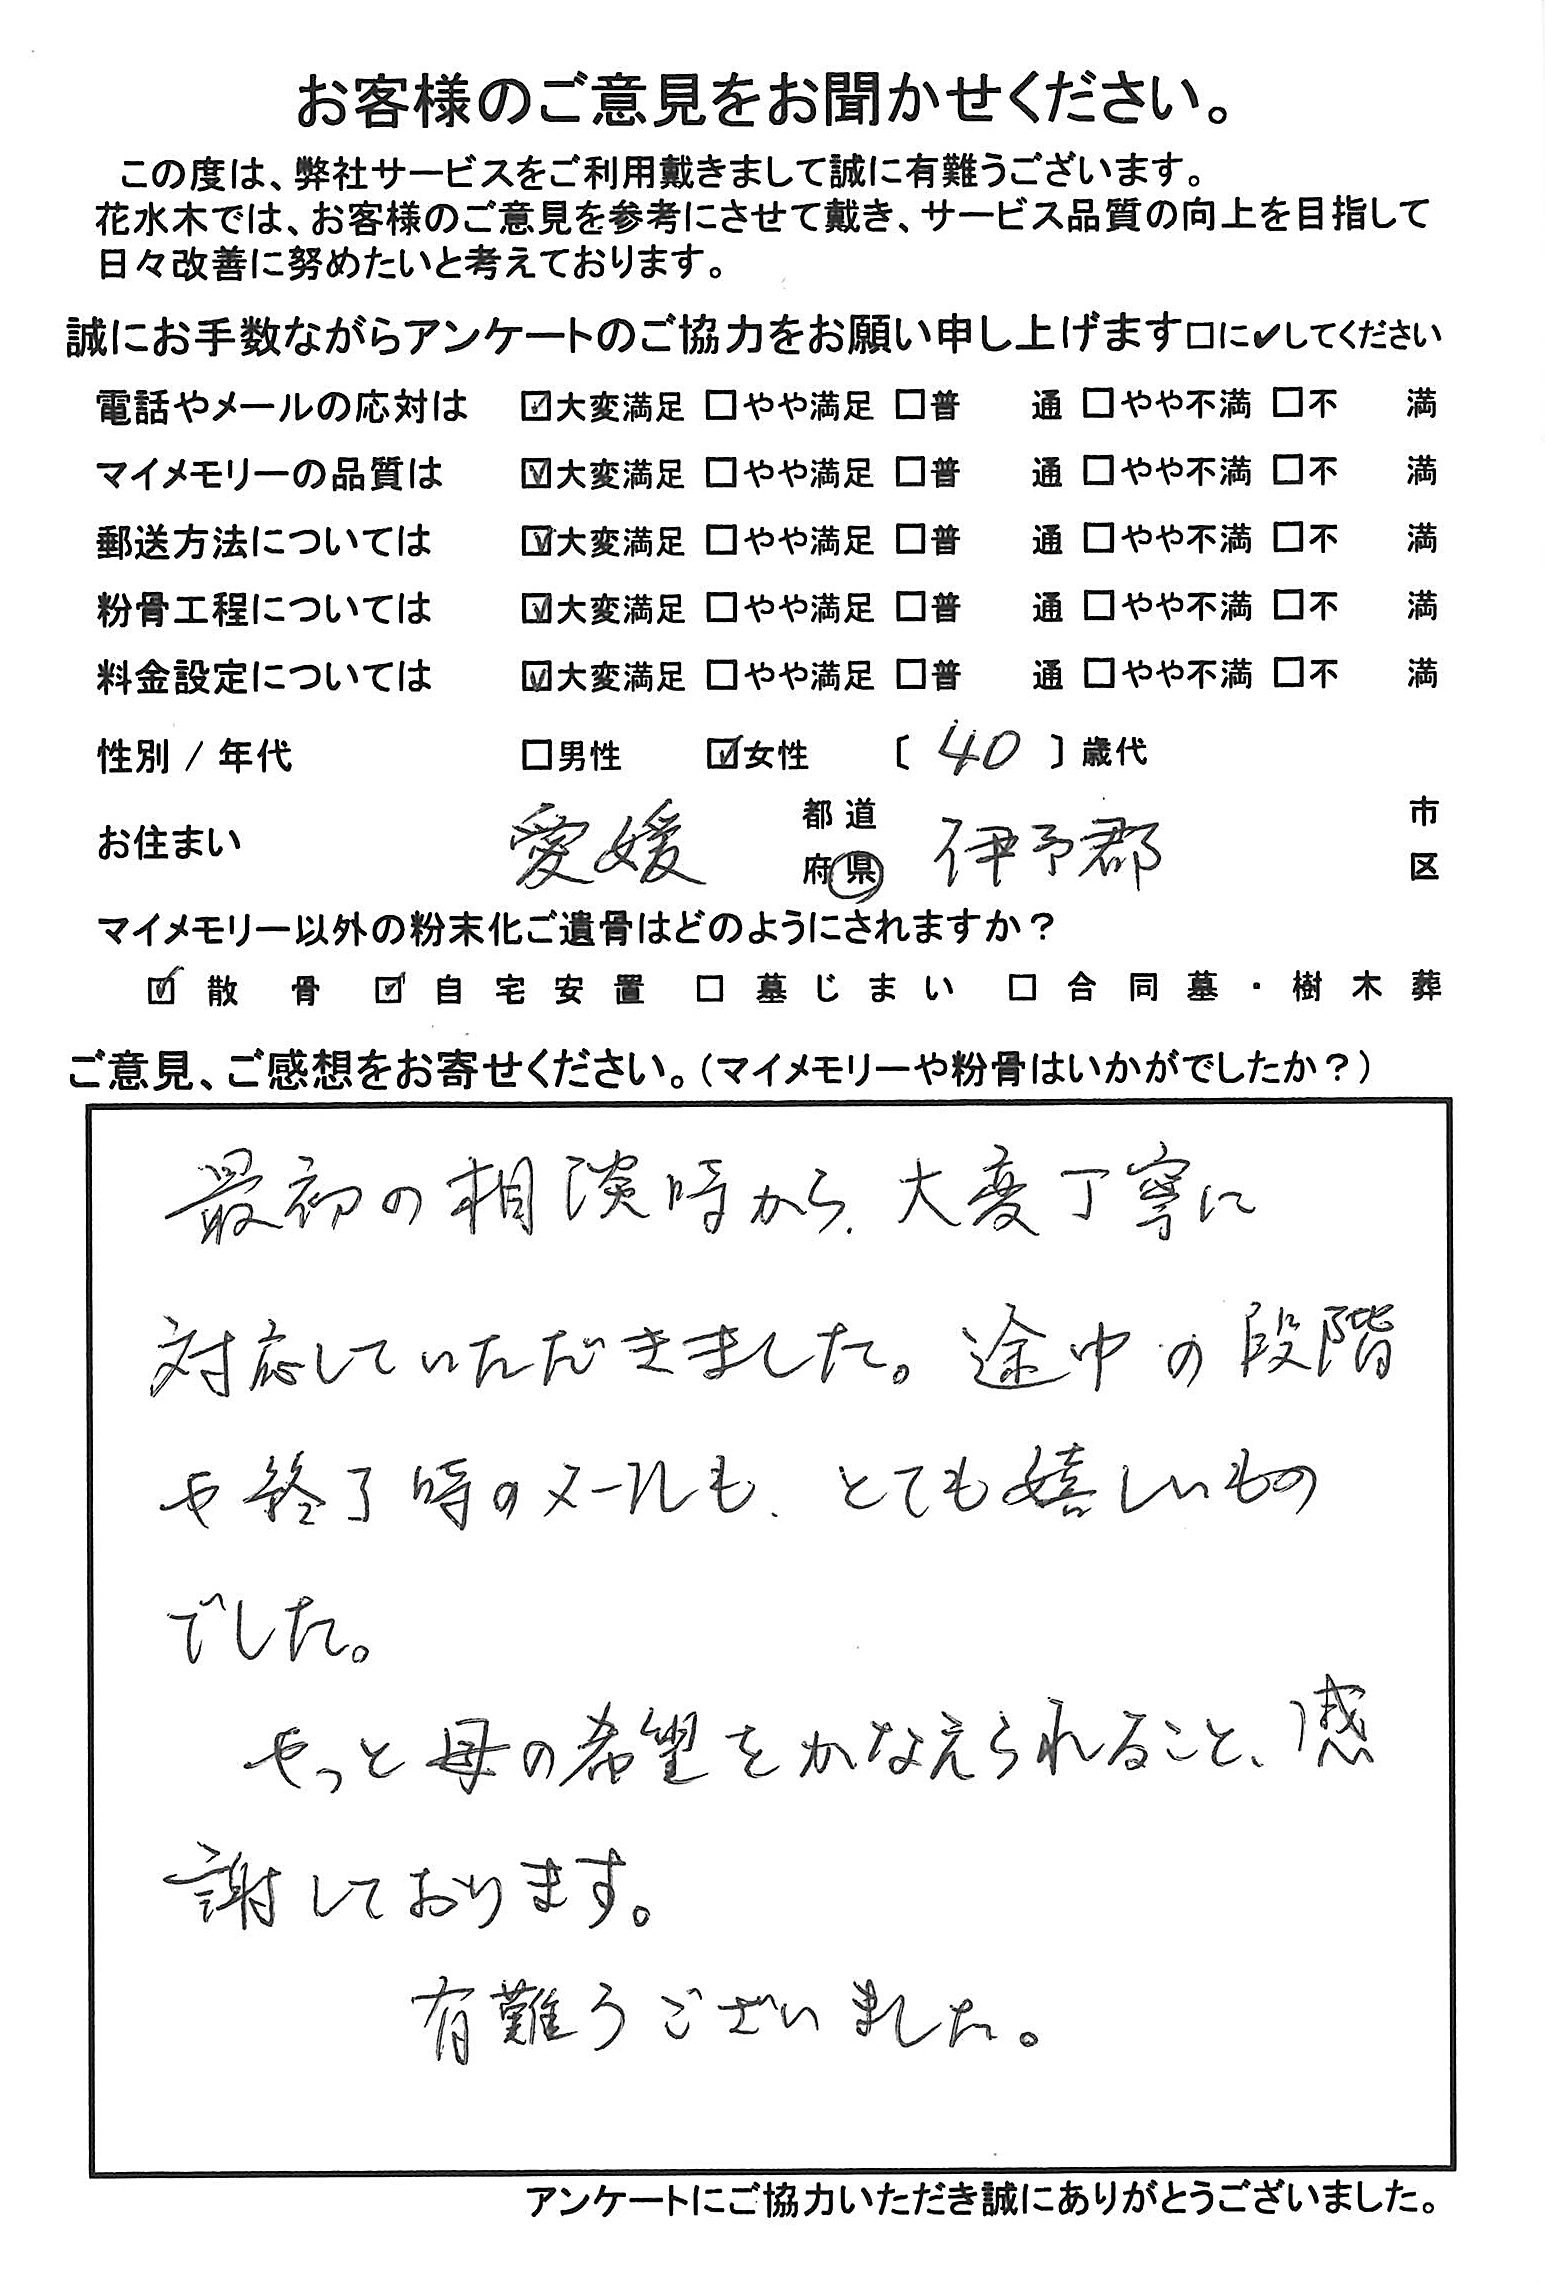 お客様のご意見をお聞かせください。
この度は、弊社サービスをご利用戴きまして誠に有難うございます。
花水木では、お客様のご意見を参考にさせて戴き、サービス品質の向上を目指して
日々改善に努めたいと考えております。
誠にお手数ながらアンケートのご協力をお願い申し上げます□に✔してください
電話やメールの応対は ☑大変満足 □やや満足 □普 通 □やや不満 □不 満
マイメモリーの品質は ☑大変満足 □やや満足 □普 通 □やや不満 □不 満
郵送方法については ☑大変満足 □やや満足 □普 通 □やや不満 □不 満
粉骨工程については ☑大変満足 □やや満足 □普 通 □やや不満 □不 満
料金設定については ☑大変満足 □やや満足 □普 通 □やや不満 □不 満
性別 / 年代 □男性 ☑女性 〔 40 〕歳代
お住まい 愛媛 都道府県 伊予郡 市区
マイメモリー以外の粉末化ご遺骨はどのようにされますか？
☑ 散骨 ☑ 自宅安置 □ 墓じまい □ 合同墓・樹木葬
ご意見、ご感想をお寄せください。（マイメモリーや粉骨はいかがでしたか？）
最初の相談時から、大変丁寧に
対応していただきました。途中の段階
や終了時のメールも、とても嬉しいもの
でした。
やっと母の希望をかなえられること、感
謝しております。
有難うございました。
アンケートにご協力いただき誠にありがとうございました。